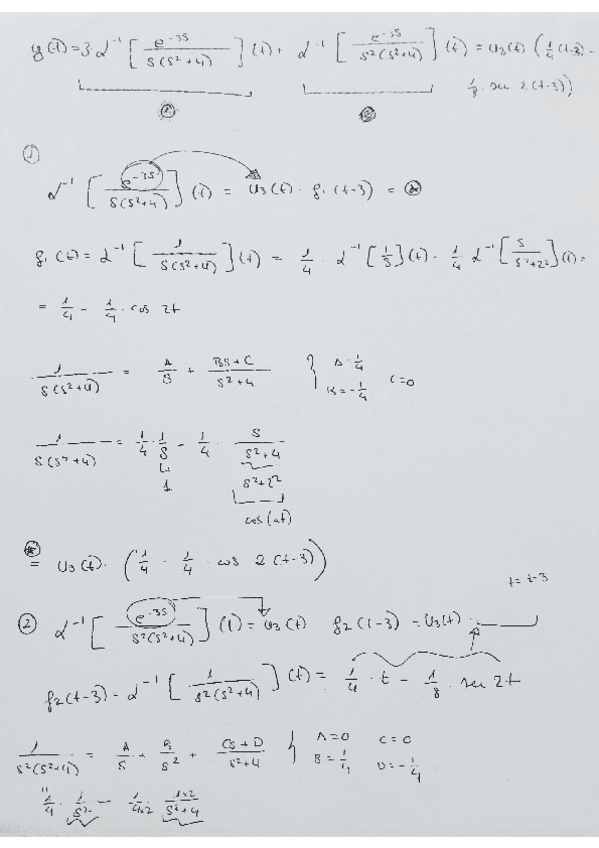 y(t) = 3 L⁻¹ [ e^{-3s} / s(s²+4) ] (t) + L⁻¹ [ e^{-3s} / s²(s²+4) ] (t) = u₃(t) ( 1/4 (t-3) -
1/8 · sen 2(t-3) )
①
L⁻¹ [ e^{-3s} / s(s²+4) ] (t) = u₃(t) · f₁(t-3) = ⊛
f₁(t) = L⁻¹ [ 1 / s(s²+4) ] (t) = 1/4 · L⁻¹ [ 1/s ] (t) - 1/4 L⁻¹ [ s / s²+2² ] (t) =
= 1/4 - 1/4 · cos 2t
1 / s(s²+4) = A/s + Bs+C / s²+4 } A = 1/4 B = -1/4 C=0
1 / s(s²+4) = 1/4 · 1/s - 1/4 · s / s²+4
1 s²+2²
cos(at)
⊛
= u₃(t) · ( 1/4 - 1/4 · cos 2(t-3) )
t = t-3
② L⁻¹ [ e^{-3s} / s²(s²+4) ] (t) = u₃(t) f₂(t-3) = u₃(t) ·
f₂(t-3) = L⁻¹ [ 1 / s²(s²+4) ] (t) = 1/4 · t - 1/8 · sen 2t
1 / s²(s²+4) = A/s + B/s² + Cs+D / s²+4 } A=0 C=0 B = 1/4 D = -1/4
"
1/4 · 1/s² - 1/4×2 · 1×2 / s²+4